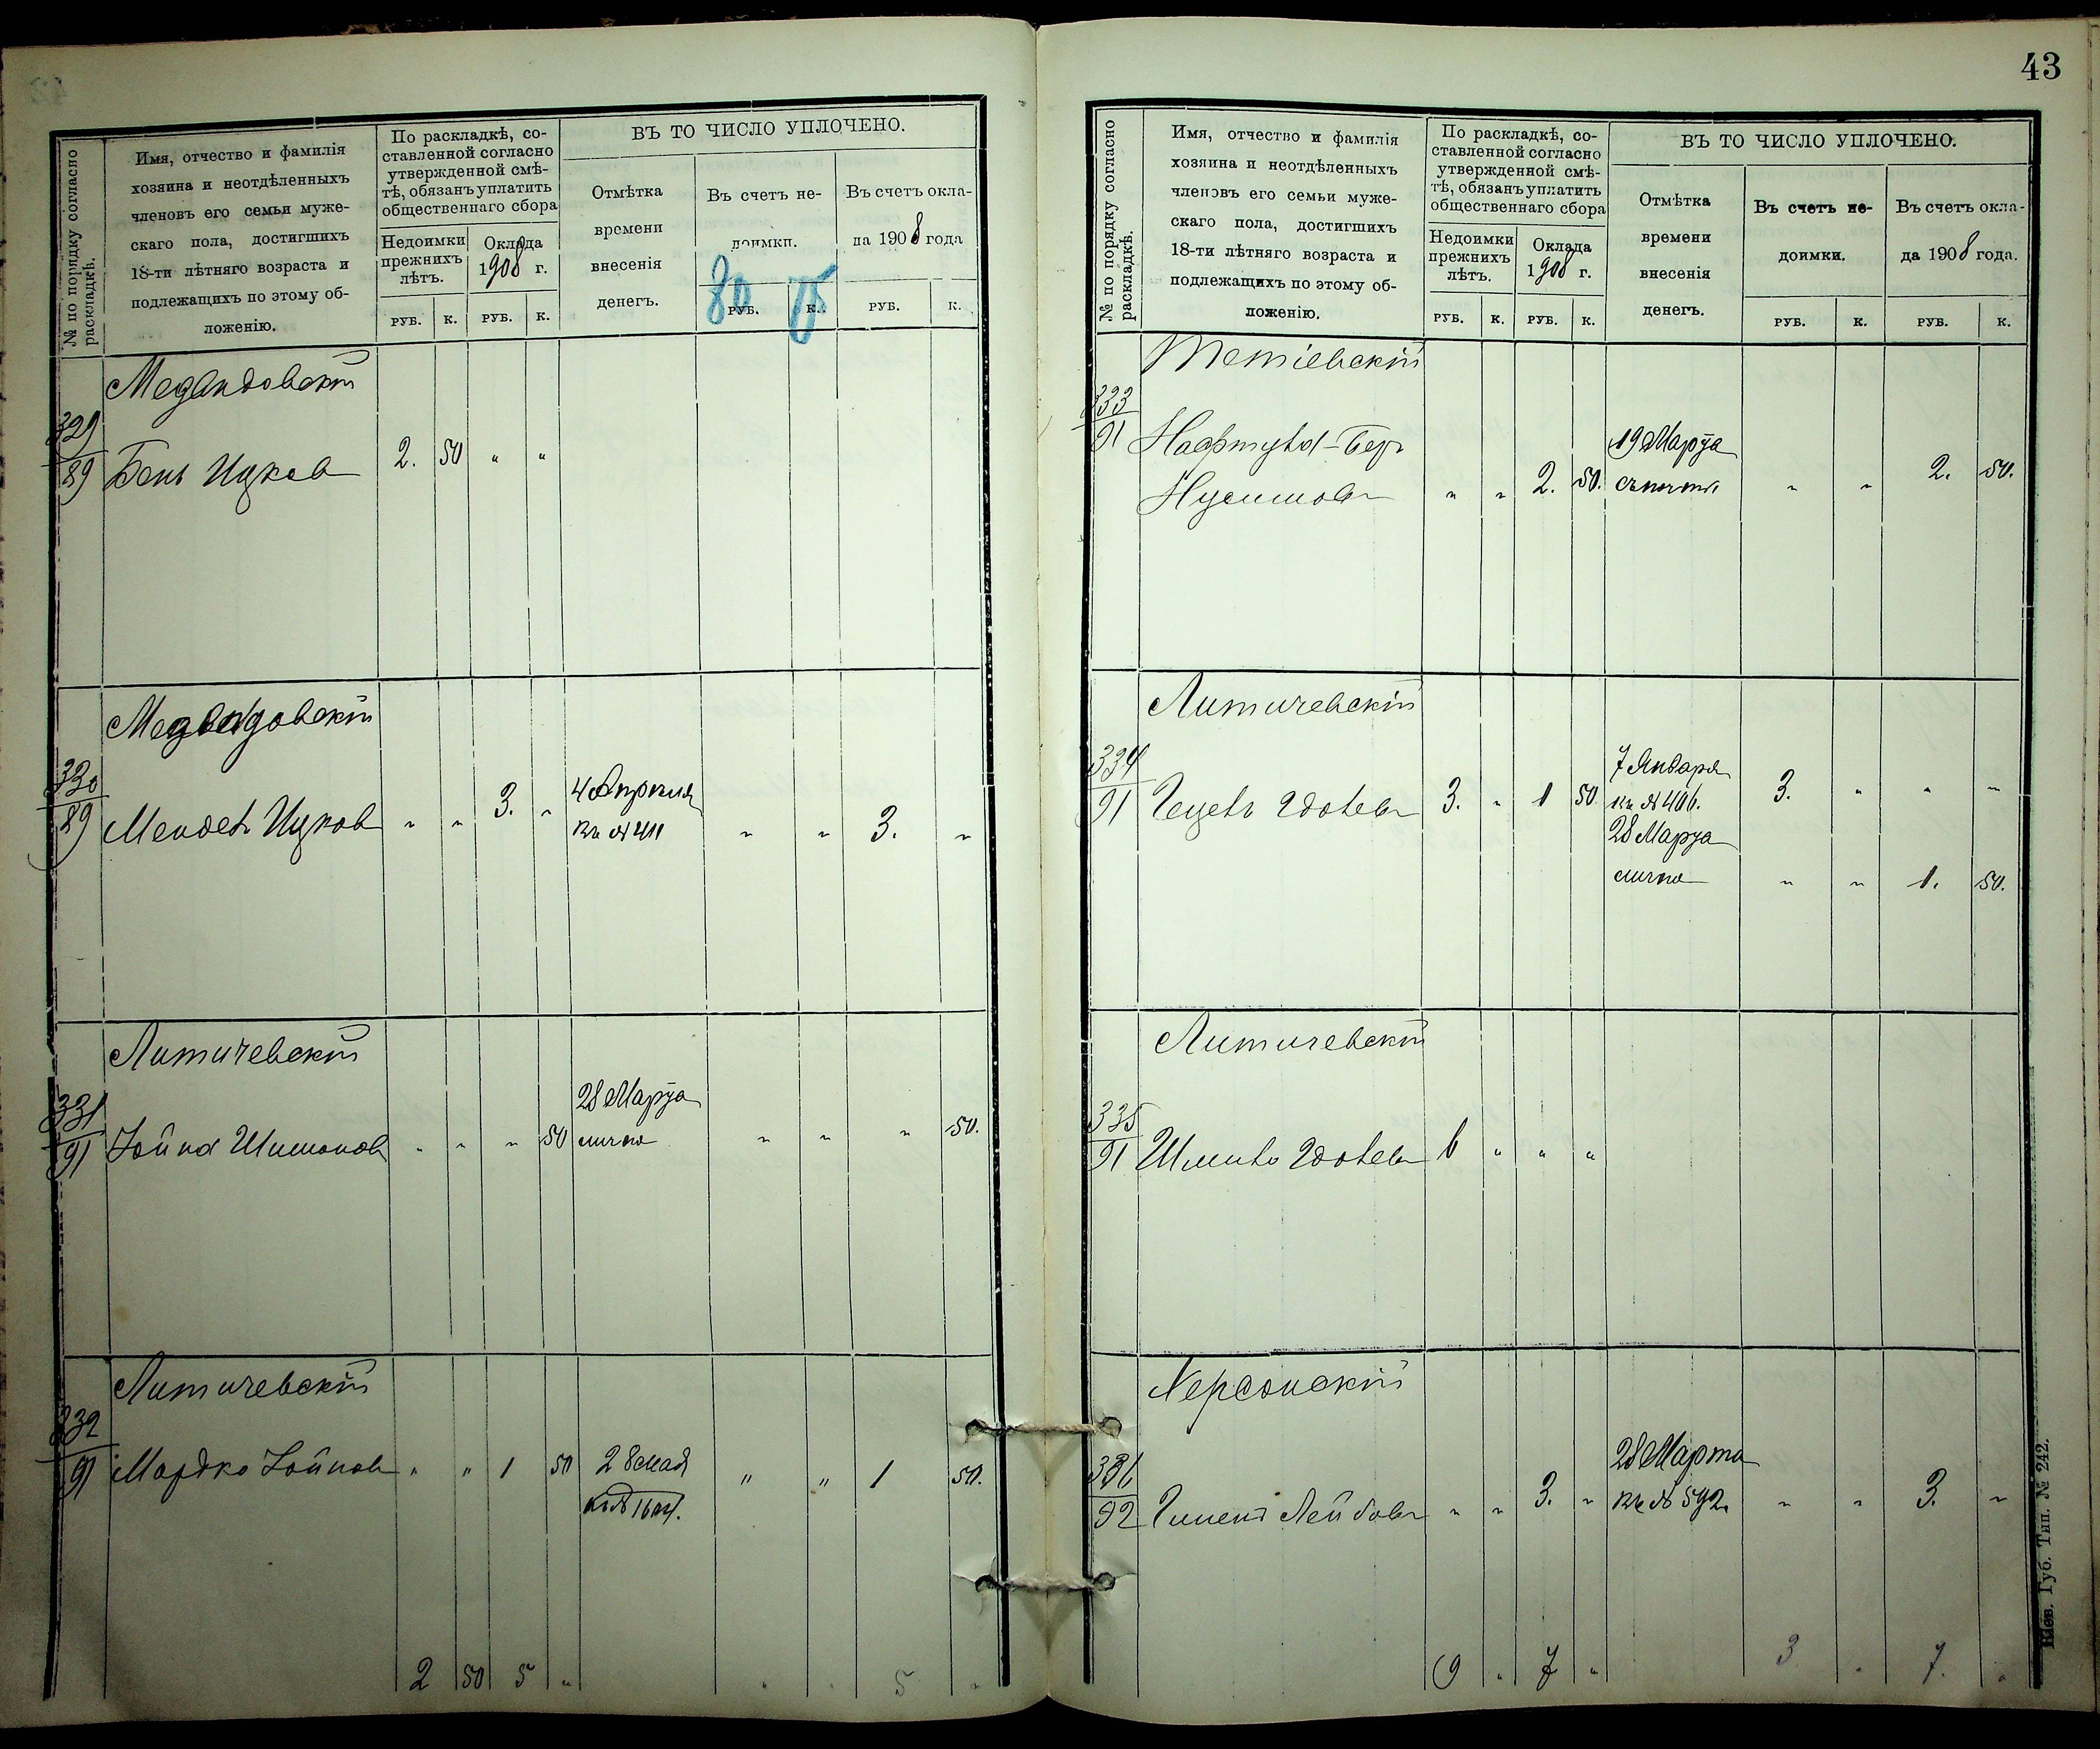 43
№ по порядку согласно раскладкѣ.
Имя, отчество и фамилія
хозяина и неотдѣленныхъ
членовъ его семьи муже-
скаго пола, достигшихъ
18-ти лѣтняго возраста и
подлежащихъ по этому об-
ложенію.
По раскладкѣ, со-
ставленной согласно
утвержденной смѣ-
тѣ, обязанъ уплатить
общественнаго сбора
Недоимки
прежнихъ
лѣтъ.
Оклада
1908 г.
РУБ. К. РУБ. К.
ВЪ ТО ЧИСЛО УПЛОЧЕНО.
Отмѣтка
времени
внесенія
денегъ.
Въ счетъ не-
доимки.
80
РУБ. К.
Въ счетъ окла-
да 1908 года
РУБ. К.
329
89
Бень Ицков 2. 50 " "
330
89
Мендель Ицков " " 3. " 4 Апреля
къ № 411 " " 3. "
Литичевскій
331
91
Іойна Шимонов " " " 50 28 Марта
лично " " " 50.
Литичевскій
332
91
Мордко Іойнов " " 1 50 28 мая
" " 1 50.
2 50 5 " " " 5 "
№ по порядку согласно раскладкѣ.
Имя, отчество и фамилія
хозяина и неотдѣленныхъ
членовъ его семьи муже-
скаго пола, достигшихъ
18-ти лѣтняго возраста и
подлежащихъ по этому об-
ложенію.
По раскладкѣ, со-
ставленной согласно
утвержденной смѣ-
тѣ, обязанъ уплатить
общественнаго сбора
Недоимки
прежнихъ
лѣтъ.
Оклада
1908 г.
РУБ. К. РУБ. К.
ВЪ ТО ЧИСЛО УПЛОЧЕНО.
Отмѣтка
времени
внесенія
денегъ.
Въ счетъ не-
доимки.
РУБ. К.
Въ счетъ окла-
да 1908 года.
РУБ. К.
Тетіевскій
333
91
Нафтула-Бер
19 Марта
Нусимов " " 2. 50. " " 2. 50.
Литичевскій
334
91
7 Января
3. " 1 50. къ № 406. 3. " " "
28 Марта
лично " " 1. 50.
Литичевскій
335
91
6 " " "
Херсонскій
336
92
Лейбов " " 3. " 28 Марта
къ № 592. " " 3. "
9 " 7 " 3 " 7. "
Кіев. Губ. Тип. № 242.